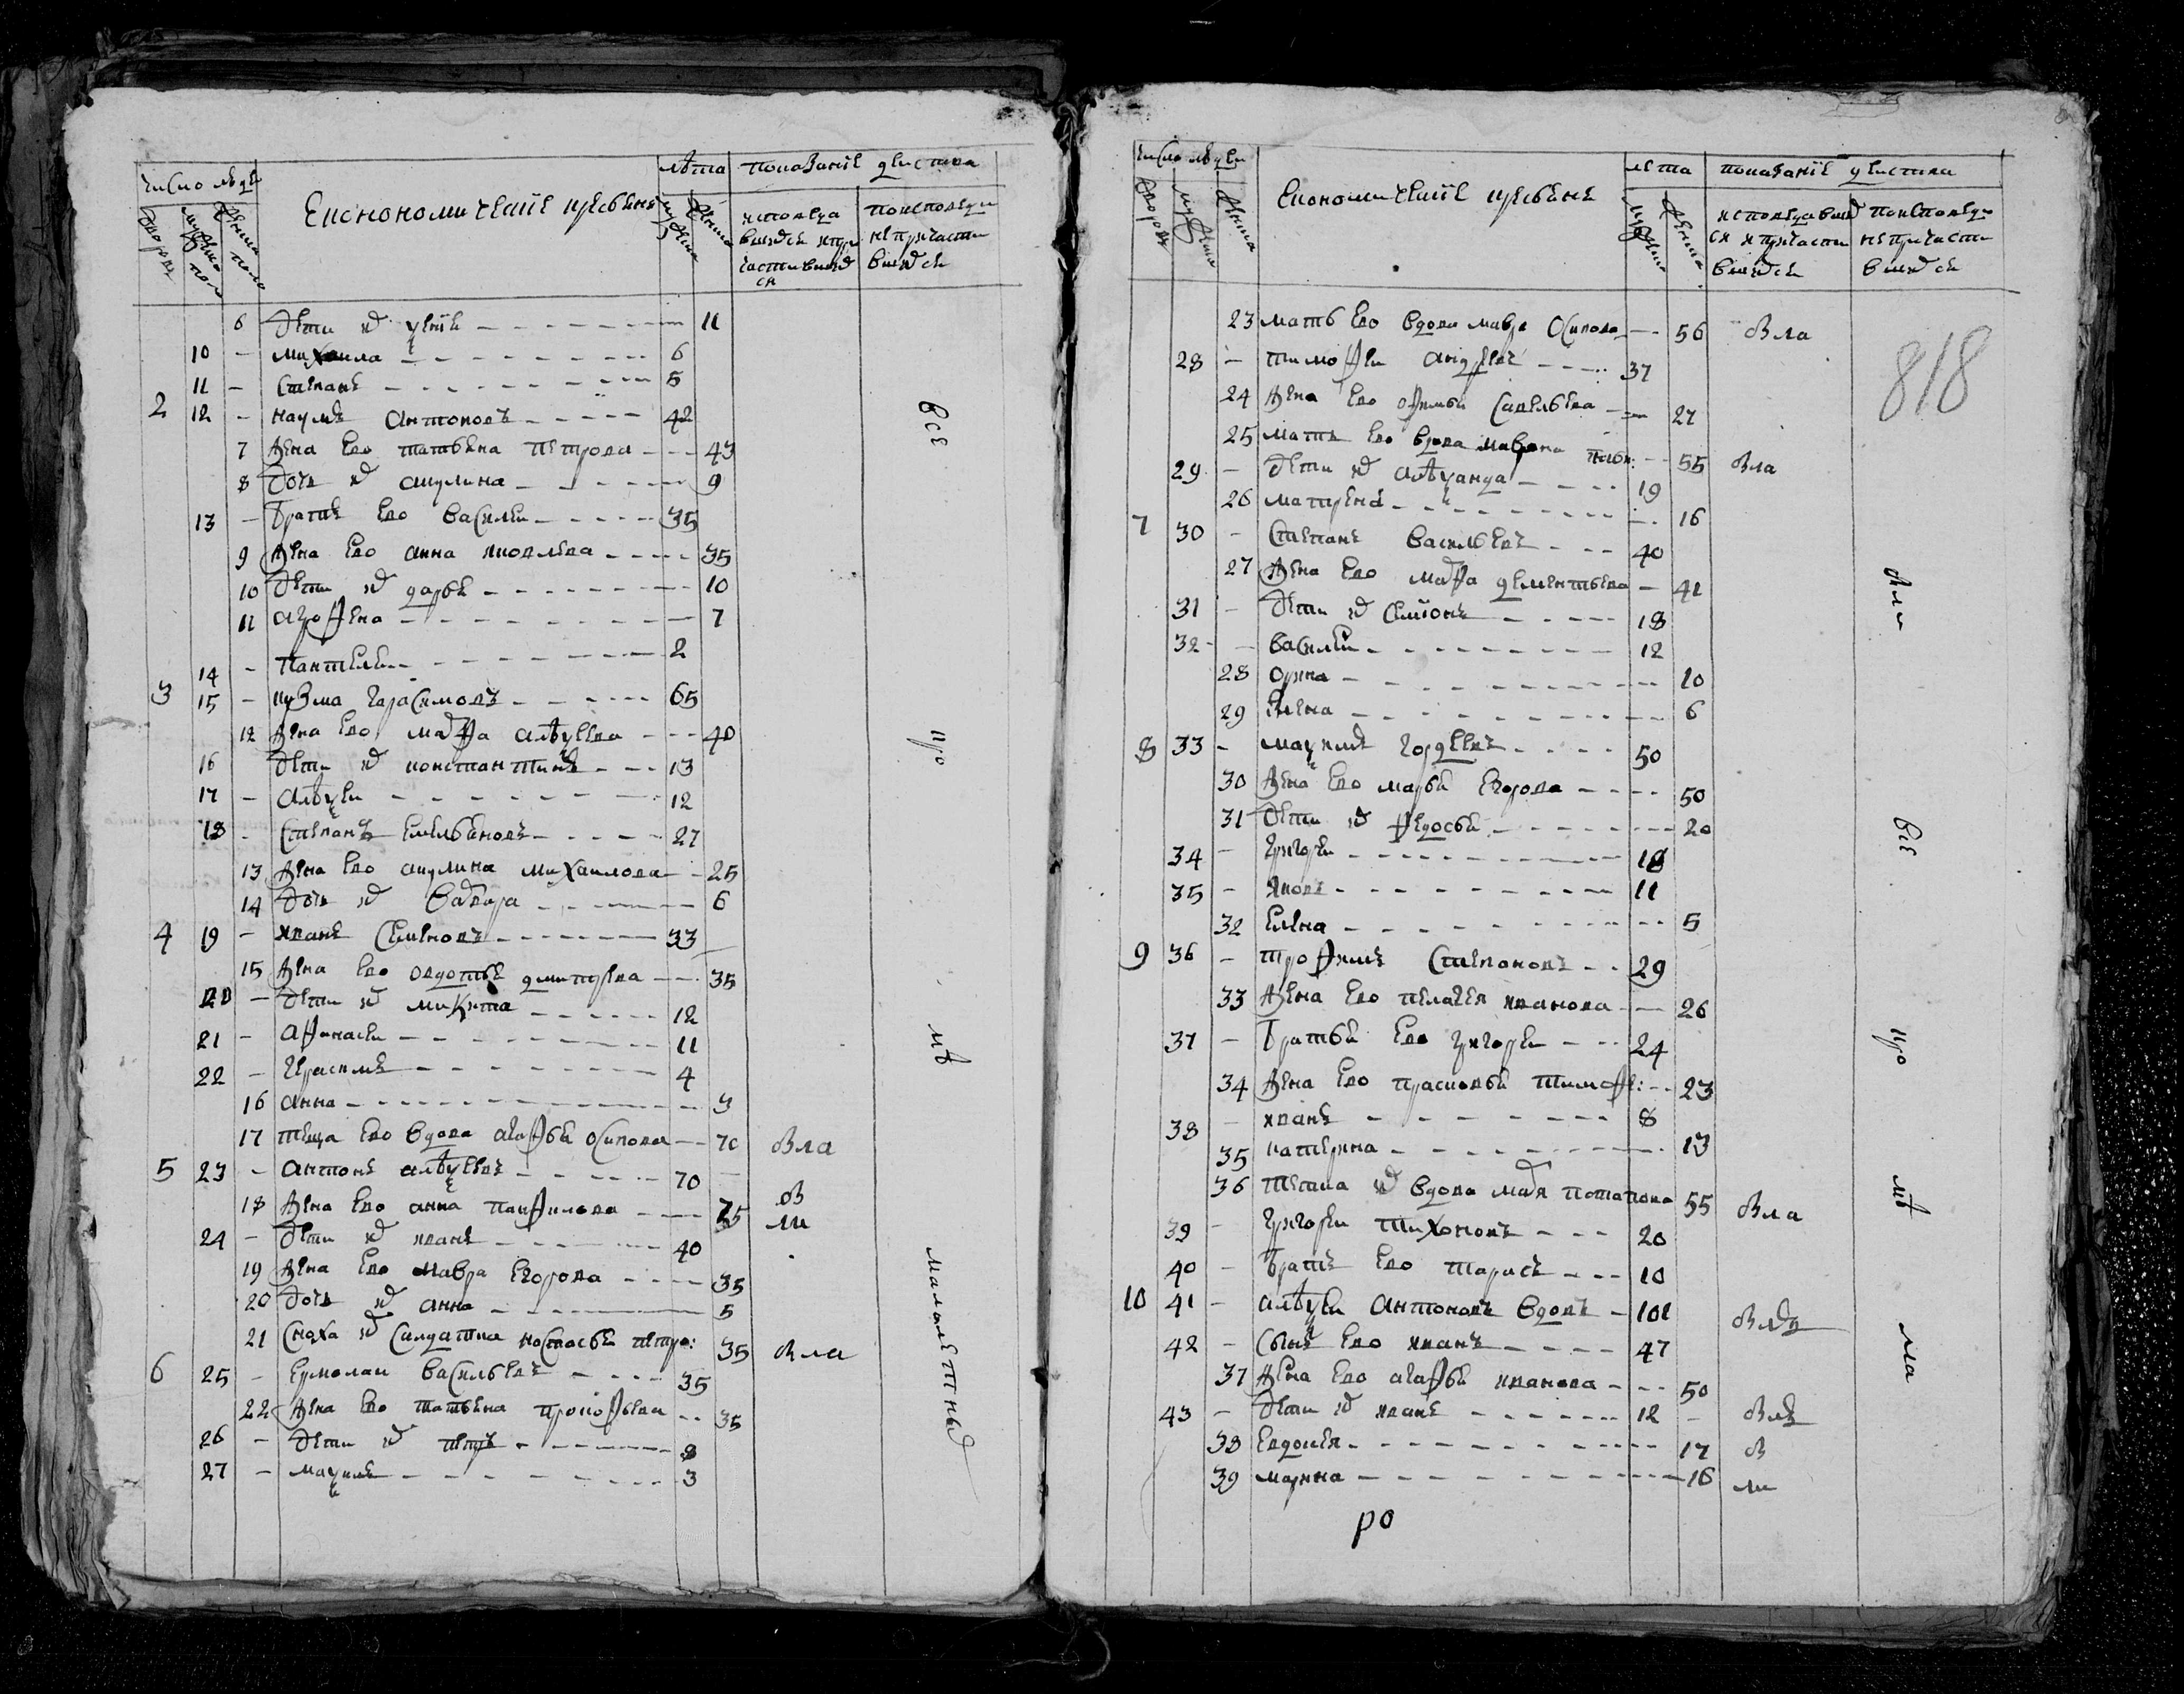 число людеи
дворовъ
мужеска полу
женска полу
Економическїе крестьяне
лѣта
мужеска
женска
показанїе деиства
исповеда
вшихся и при
частивших
ся
по исповеди
не причасти
вшихся
6 Дети их 11
10 – Михаила – 6
11 – Степанъ – 5
2 12 – Наумъ Антоновъ – 42
7 Жена ево Татьяна Петрова – 43
8 Дочь их Акулина – 9
13 – Братъ ево Василеи – 35
9 Жена ево Анна Яковлева – 35
10 Дети их Дарья – 10
11 Агрофена – 7
14 – Пантелеи – 2
3 15 – Кузма Гарасимовъ – 65
12 Жена ево Марфа Алѣксеева – 40
16 Дети их Константинъ – 13
17 – Алѣксеи – 12
18 – Степанъ Емельяновъ – 27
13 Жена ево Акулина Михаилова – 25
14 Дочь их Варвара – 6
4 19 – Иванъ Семеновъ – 33
15 Жена ево Овдотья Дмитрева – 35
20 – Дети их Микита – 12
21 – Афонасеи – 11
22 – Герасимъ – 4
16 Анна – 3
17 Теща ево вдова Агафья Осипова – 70 вла
5 23 – Антонъ Алѣксеевъ – 70
18 Жена ево Анна Панфилова – 75 в
ли
24 – Дети их Иванъ – 40
19 Жена ево Мавра Егорова – 35
20 Дочь их Анна – 5
21 Сноха их салдатка Настасья Петро: 35 вла
6 25 – Ермолаи Васильевъ – 35
22 Жена ево Татьяна Прокофьева – 35
26 – Дети их Петръ – 8
27 – Макеимъ – 3
все
про
мѣ
малолѣтных
число людеи
дворовъ
мужеска
женска
Економическїе кресьяне
лета
мужеска
женска
показанїе деиства
исповедавших
ся и причасти
вшихся
по исповеди
не причасти
вшихся
818
23 Мать ево вдова Мавра Осипова – 56 вла
28 – Тимофеи Андреевъ – 37
24 Жена ево Офимья Савельева – 27
25 Мать ево вдова Маврена 55 вла
29 – Дети их Алѣксандра – 19
26 Матрена – 16
7 30 – Степанъ Васильевъ – 40
27 Жена ево Марфа Дементьева – 41
31 – Дети их Семїонъ – 18
32 – Василеи – 12
28 Орина – 10
29 Елена – 6
8 33 – Максимъ Гордеевъ – 50
30 Жена ево Марья Егорова – 50
31 Дети их Федосья – 20
34 – Григореи – 18
35 – Яковъ – 11
32 Елена – 5
9 36 – Трофимъ Степановъ – 29
33 Жена ево Пелагея Иванова – 26
37 – Братья ево Григореи – 24
34 Жена ево Прасковья Тимофе: 23
38 – Иванъ – 8
35 Катерина – 13
36 Тетка их вдова Марья Потапова 55 вла
39 – Григореи Тихоновъ – 20
40 – Братъ ево Тарасъ – 10
10 41 – Алѣксеи Антоновъ вдовъ – 101
42 – Сынъ ево Иванъ – 47
37 Жена ево Агафья Иванова – 50
43 – Дети их Иванъ – 12
38 Евдокея – 17 в
39 Марина – 16 ли
вли
все
про
мѣ
ла
ро